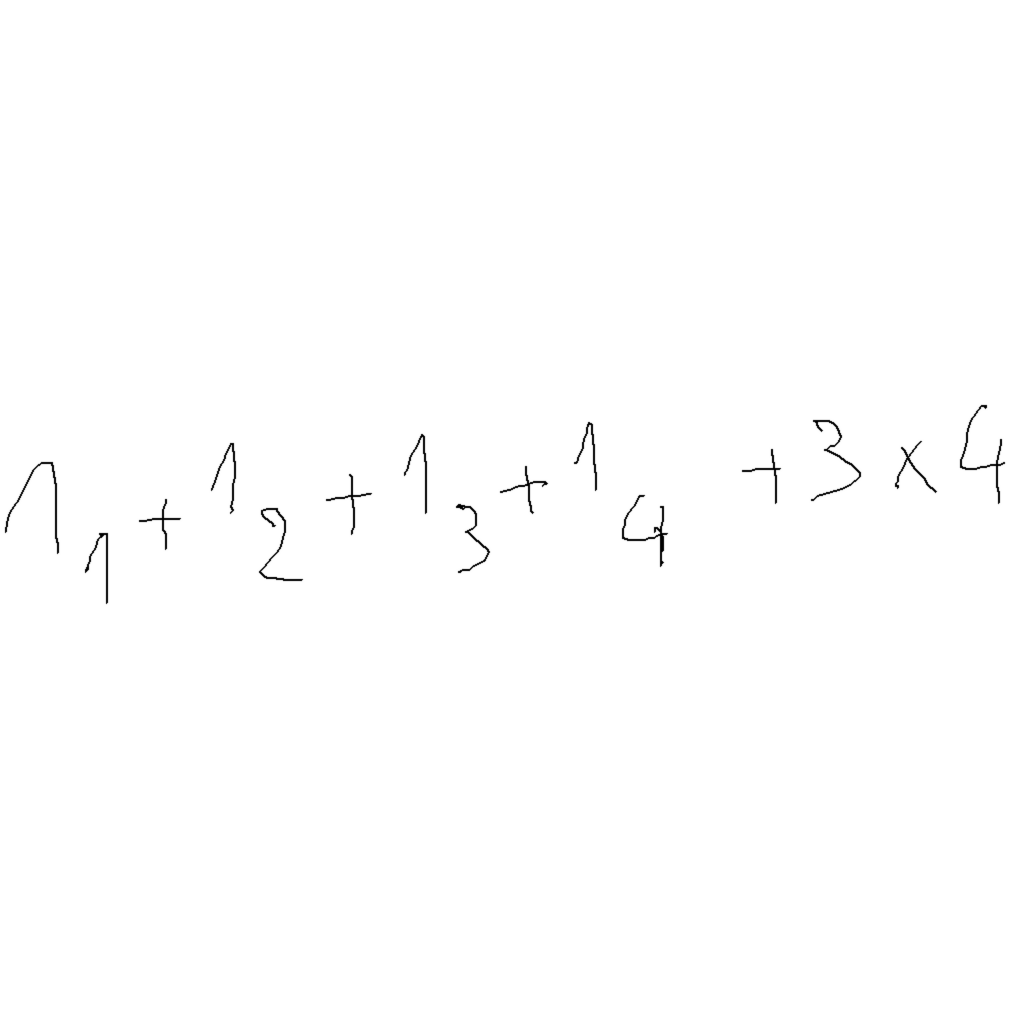 1₁ + 1₂ + 1₃ + 1₄ + 3 × 4